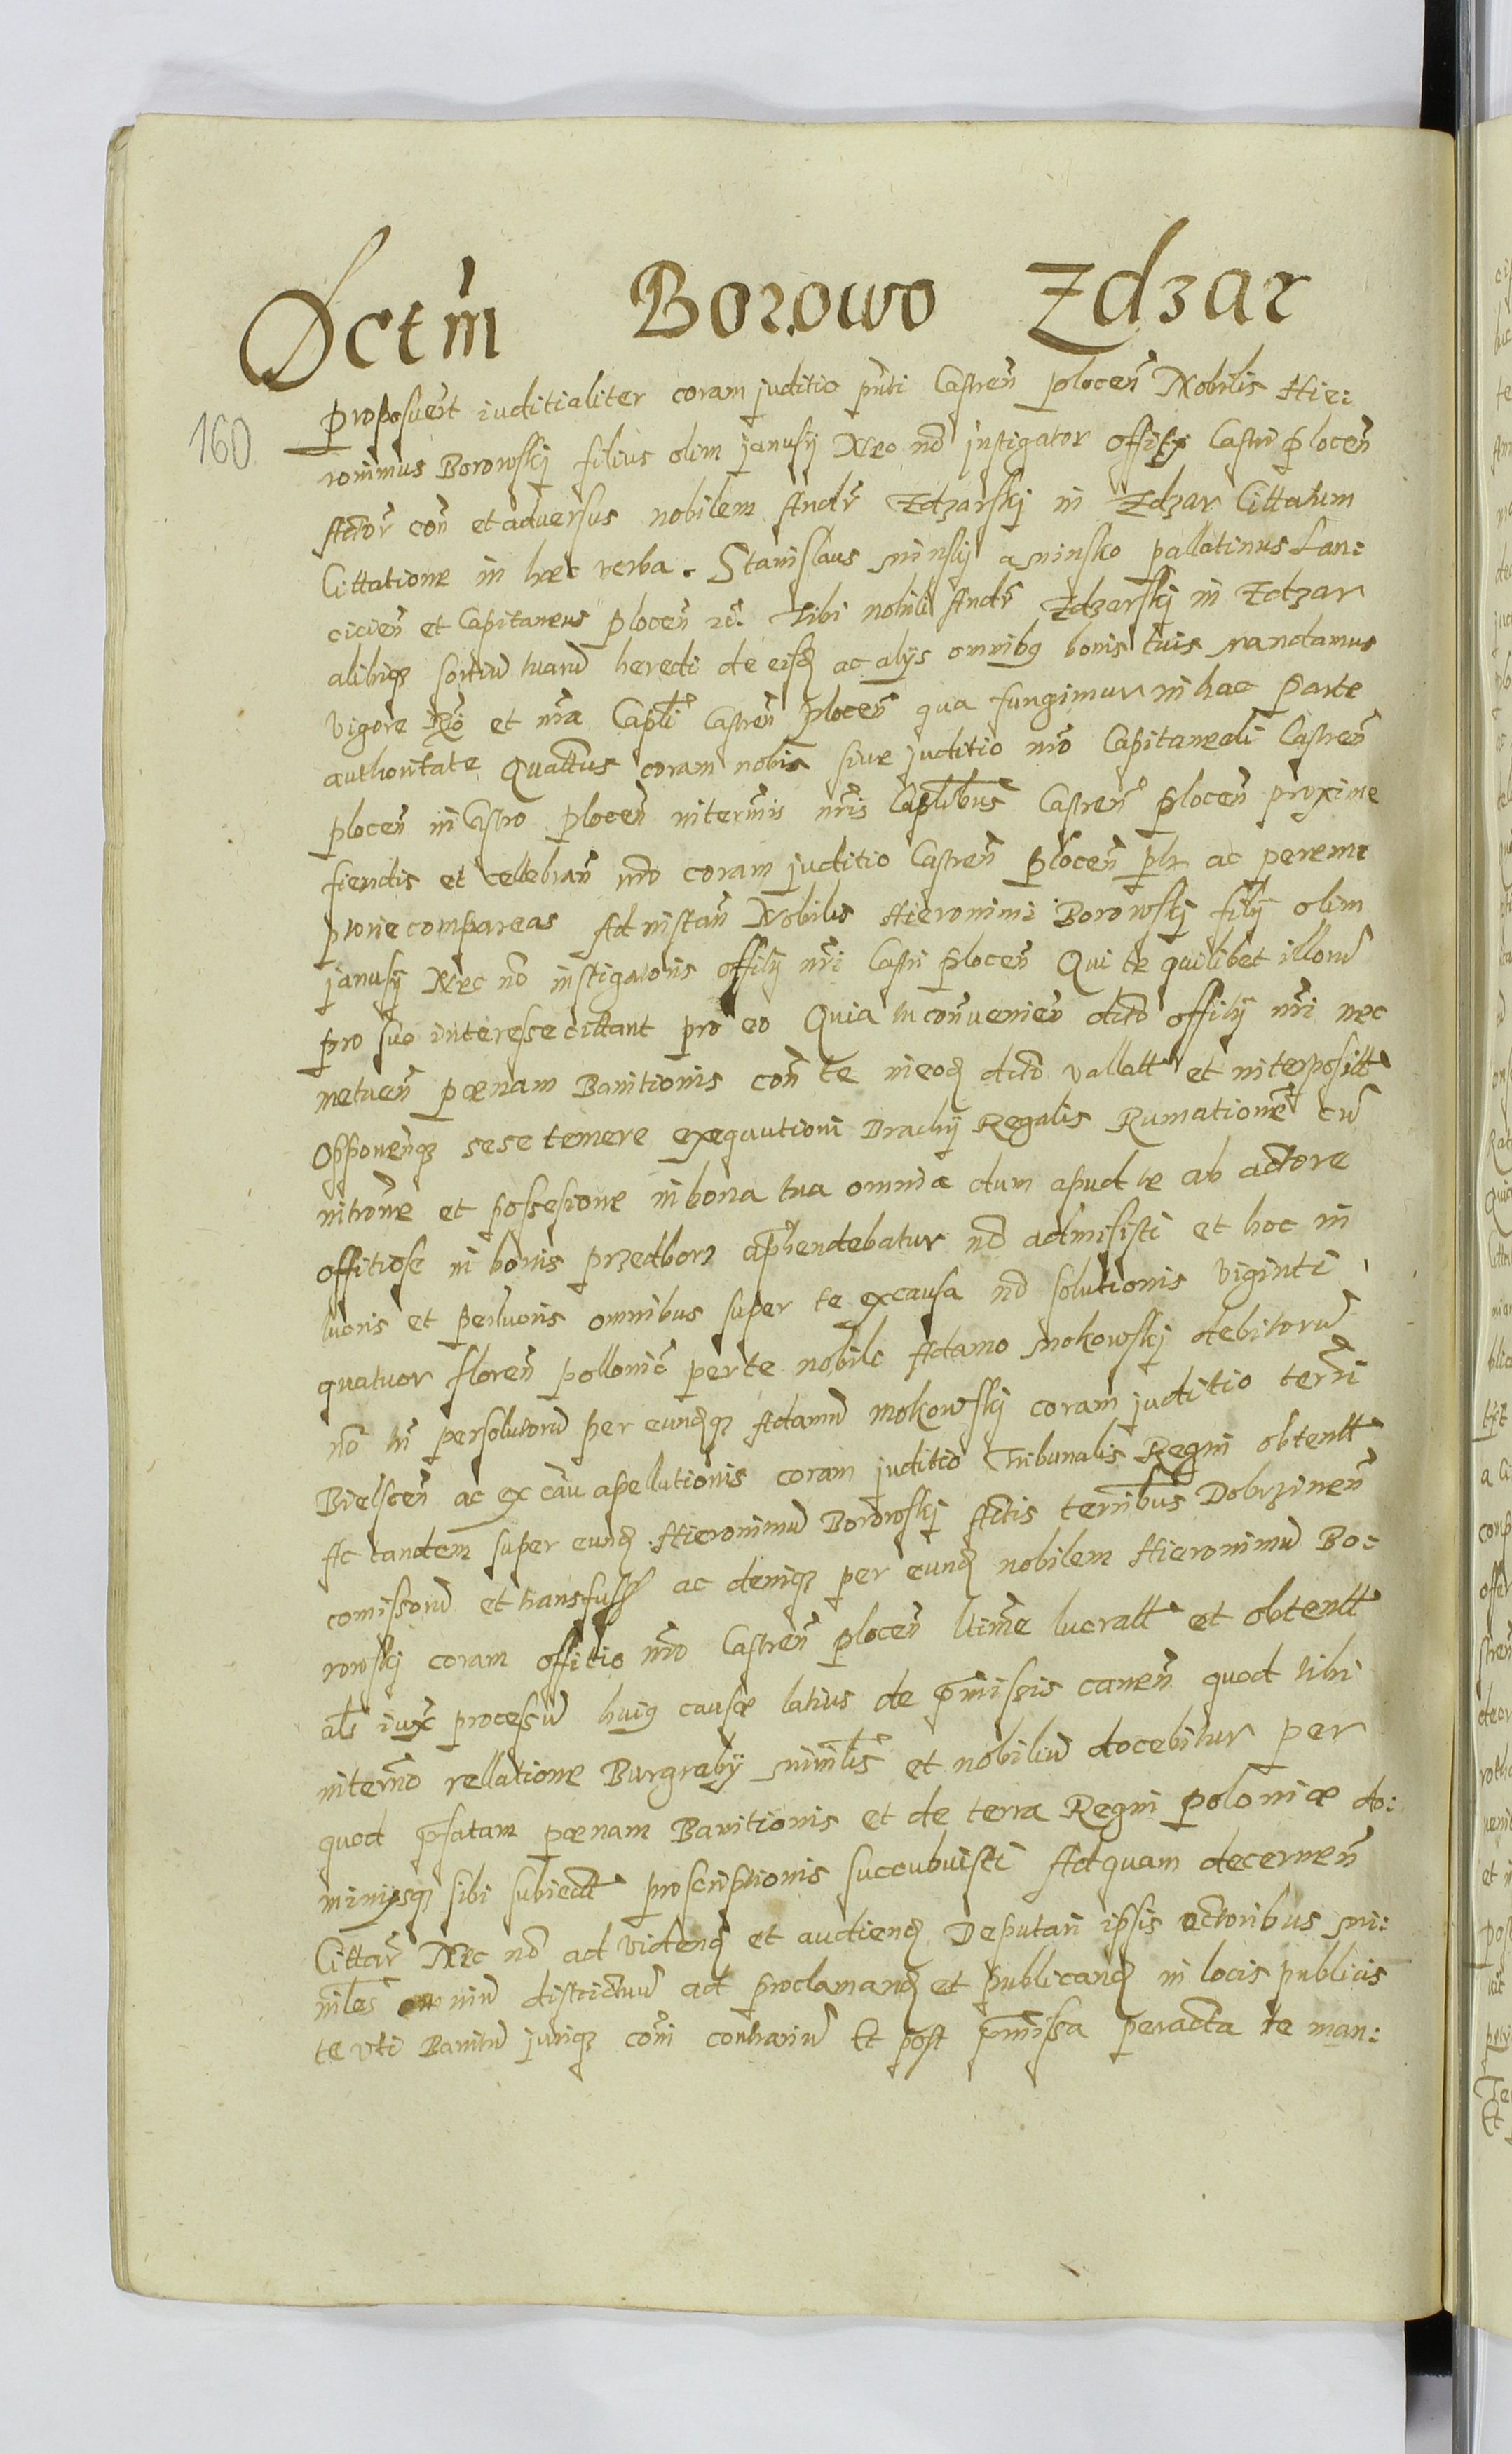 Dctm̃ Borowo Zdzar
160
proposuer̃t iuditialiter coram juditio pñti Castreñ plocen̄ Nobilis Hie:
ronimus Borowskj filius olim janusij Nec nō jnstigator offitii Castri plocen̄
Actor̃ con̄ et adversus nobilem Andr̃ Zdzarskj in Zdzar Cittatum
Cittatione in hæc verba. Stanislaus Minskj a Minsko pallatinus Lan:
cicien̄ et Capitaneus plocen̄ rc̄. Tibi nobili Andr̃ Zdzarskj in Zdzar
alibiqȝ sortiū tuarū heredi de eisd̨ ac alÿs omnibꝰ bonis tuis Mandamus
vigore et nr̃a Caplī Castren̄ plocen̄ qua fungimur in hac parte
authoritate Quattus coram nobis sive juditio nr̃o Capitaneali Castren̄
plocen̄ in Castro plocen̄ interm̃is nr̃is Caplībus Castren̄ plocen̄ proxime
fiendis et cellebran̄ nr̃o coram juditio Castren̄ plocen̄ plr ac perem:
ptorie compareas Ad instan̄ Nobilis Hieronimi Borowskj filÿ olim
janusÿ Nec nō instigatoris offitÿ nr̃i Castri plocen̄ Qui te quilibet illorū
pro suo interesse cittant pro eo Quia tu con̄venien̄ dicto offitÿ nr̃i nec
metuen̄ pœnam Banitionis con̄ te in eod̨ dicto vallatt et interpositt
Opponenqȝ sese temere exeqautioni Brachÿ Regalis Rumatione cū
intro͞ne et possesione in bona tua omnia dum apud te ab actore
offitiose in bonis przedborz aphendebatur nō admisisti et hoc in
lucris et perlucris omnibus super te ex causa nō solutionis viginti
quatuor floren̄ pollonic̄ per te nobile Adamo Mokowskj debitorū
nō tn̄ persolutorū per eundqȝ Adamū Mokowskj coram juditio terr̃i
Bielscen̄ ac ex cāu apellationis coram juditio Tribunalis Regni obtentt
Ac tandem super eund̨ Hieronimū Borowskj Actis terribus Dobrzinen̄
comissorū et transfuss ac deniqȝ per eund̨ nobilem Hieronimū Bo:
rowskj coram offitio nr̃o Castren̄ plocen̄ ltime lucratt et obtentt
als̄ iuxᵃ procesū huiꝰ causæ latius de p̄missis canen̄ quod tibi
in term̃o rellatione Burgrabÿ minlis̄ et nobiliū docebitur per
quod p̄fatam pœnam Banitionis et de terra Regni poloniæ do:
minÿsqȝ sibi subiectt proscriptionis succubuisti Ad quam decernen̄
Cittar̃ Nec nō ad videnḑ et audienḑ Deputari ipsis actoribus mi:
niles̄ omniū districtuū ad proclamanḑ et publicanḑ in locis publicis
te uti Banitū juriqȝ com̄i contrariū Et post p̄missa peracta te man: